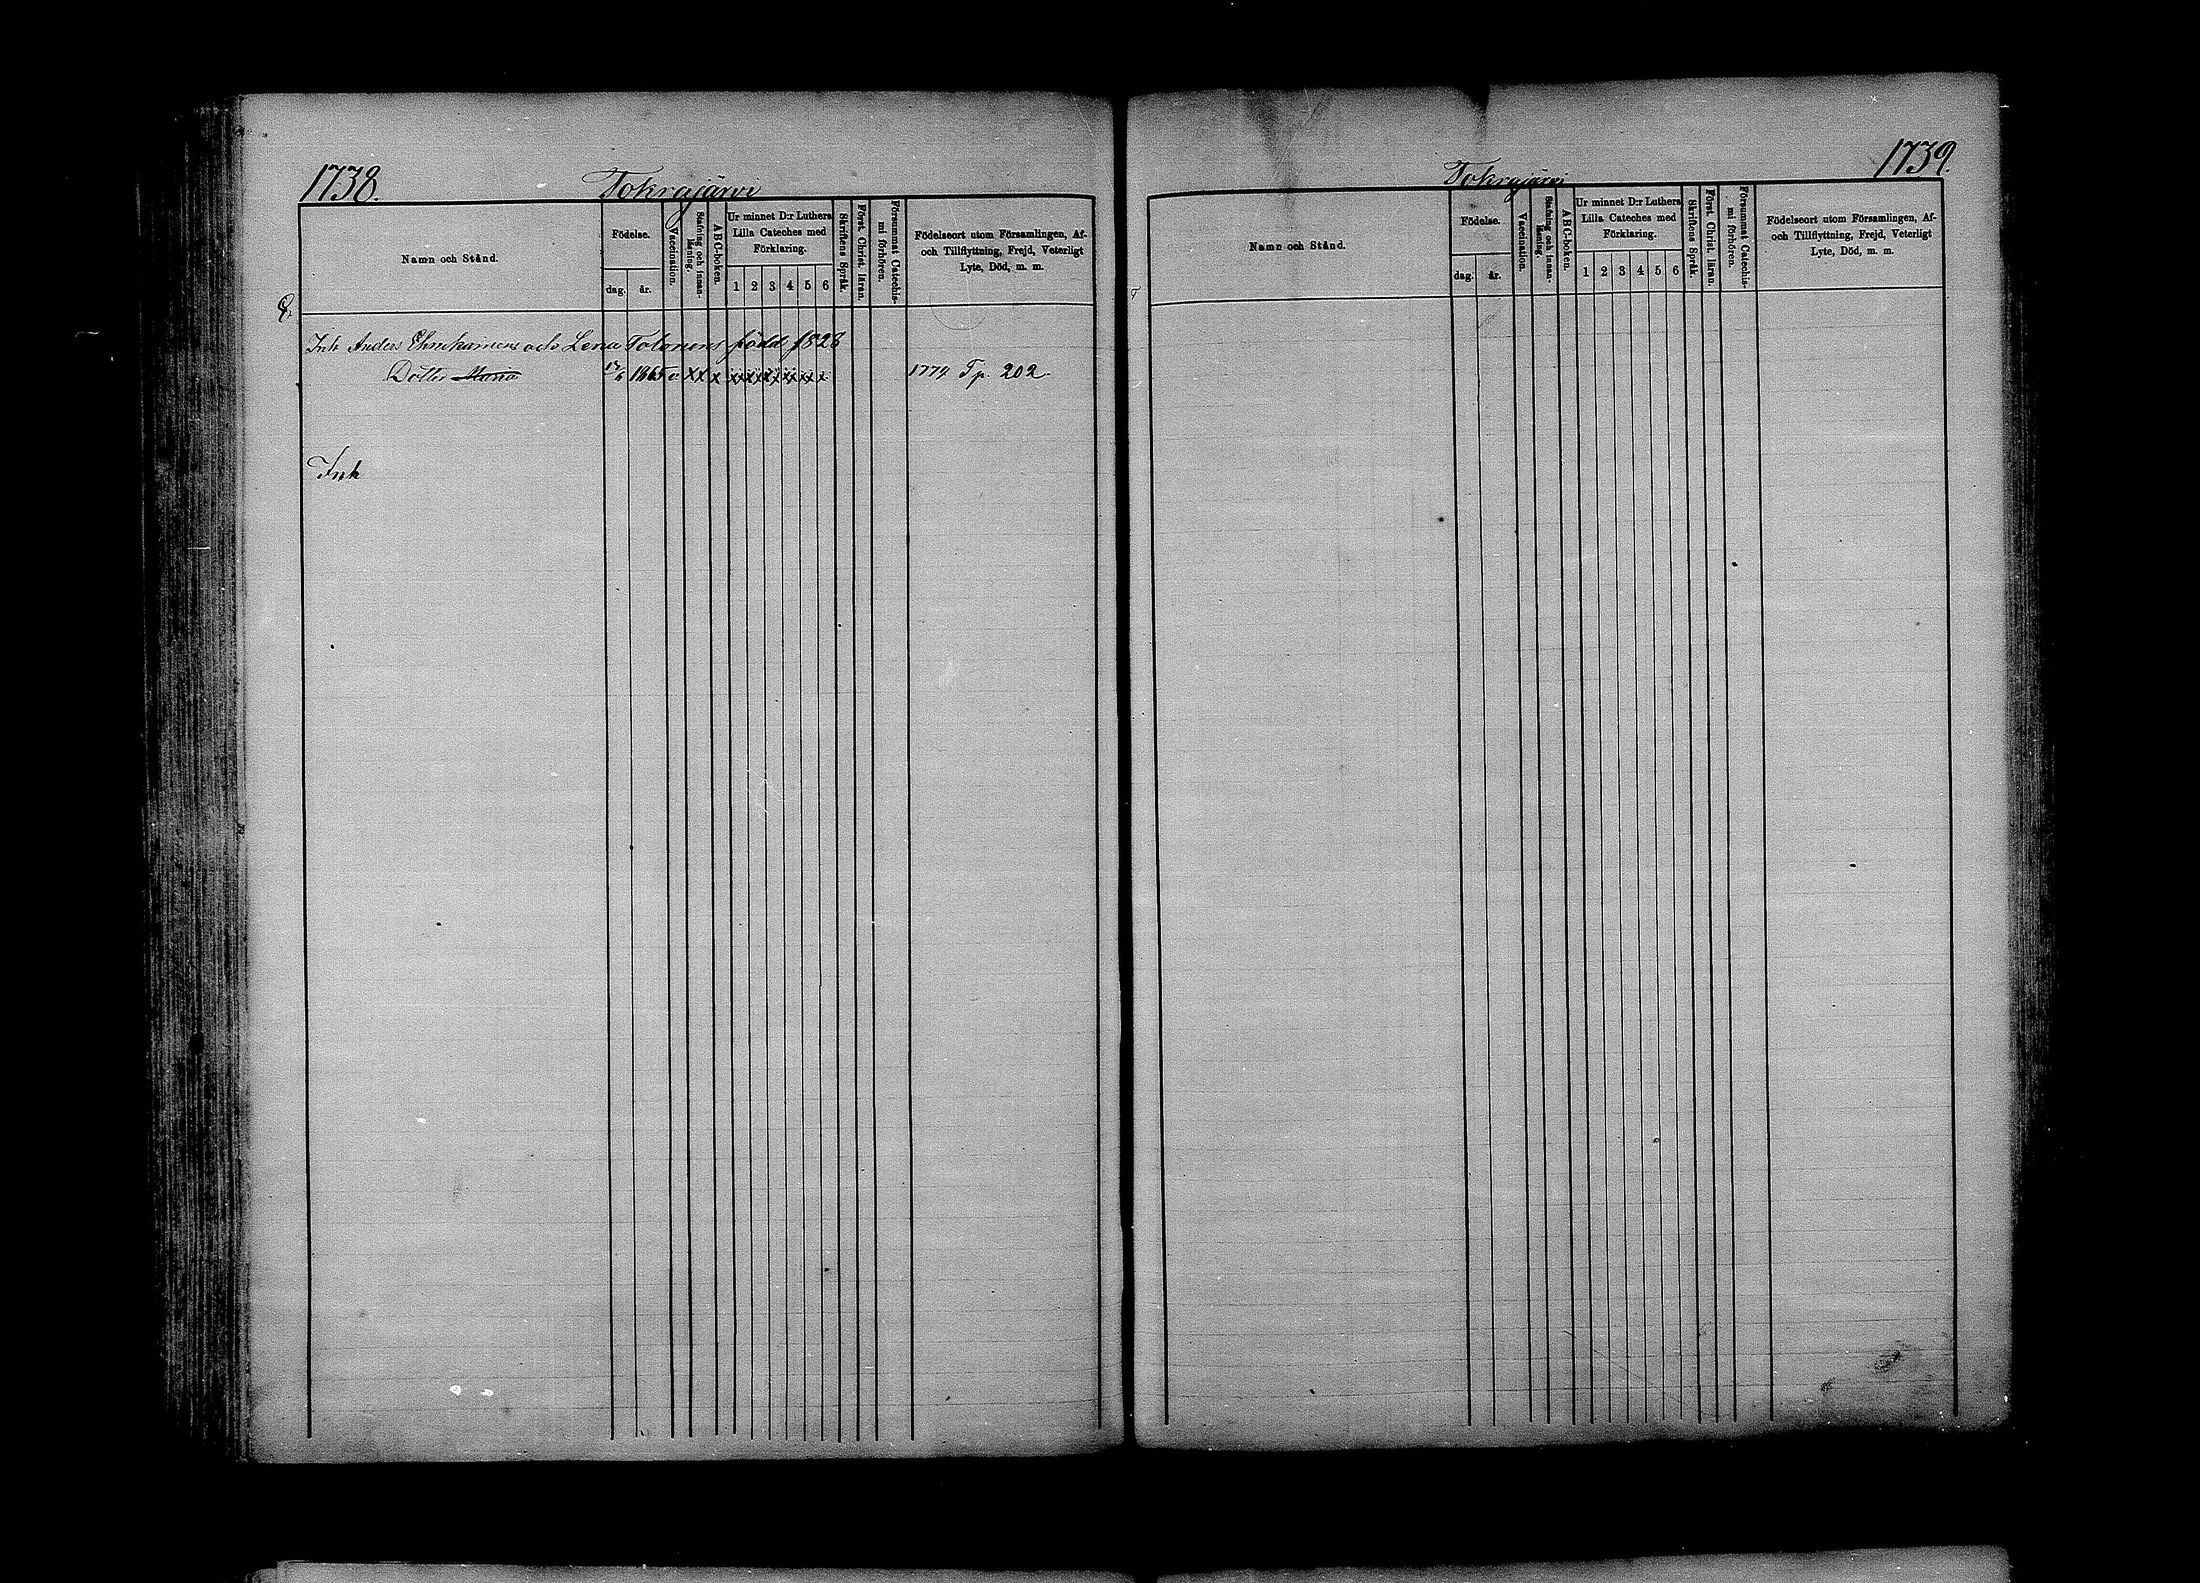 1738.
Tohrajärvi
Namn och Stånd.
Födelse.
dag.
år.
Vaccination.
Stafning och innan-
läsning.
ABC-boken.
Ur minnet D:r Luthers
Lilla Cateches med
Förklaring.
1 2 3 4 5 6
Skriftens Språk.
Först. Christ. läran.
Försummat Catechis-
mi förhören.
Födelseort utom Församlingen, Af-
och Tillflyttning, Frejd, Veterligt
Lyte, Död, m. m.
Inh Anders och Lena Tolonens född 1828
Dotter Maria 1865 v xx x xx xx xx xx xx x 1774 Tp. 202.
Inh
1739.
Tohrajärvi
Namn och Stånd.
Födelse.
dag.
år.
Vaccination.
Stafning och innan-
läsning.
ABC-boken.
Ur minnet D:r Luthers
Lilla Cateches med
Förklaring.
1 2 3 4 5 6
Skriftens Språk.
Först. Christ. läran.
Försummat Catechis-
mi förhören.
Födelseort utom Församlingen, Af-
och Tillflyttning, Frejd, Veterligt
Lyte, Död, m. m.